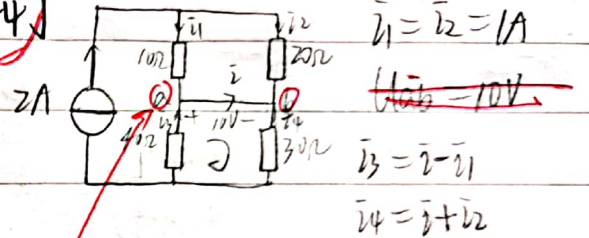 4
i1 i2
10Ω 20Ω
i
2A a b
i3 + 10V - i4
40Ω 30Ω
i1 = i2 = 1A
Uab = 10V
i3 = i - i1
i4 = i + i2